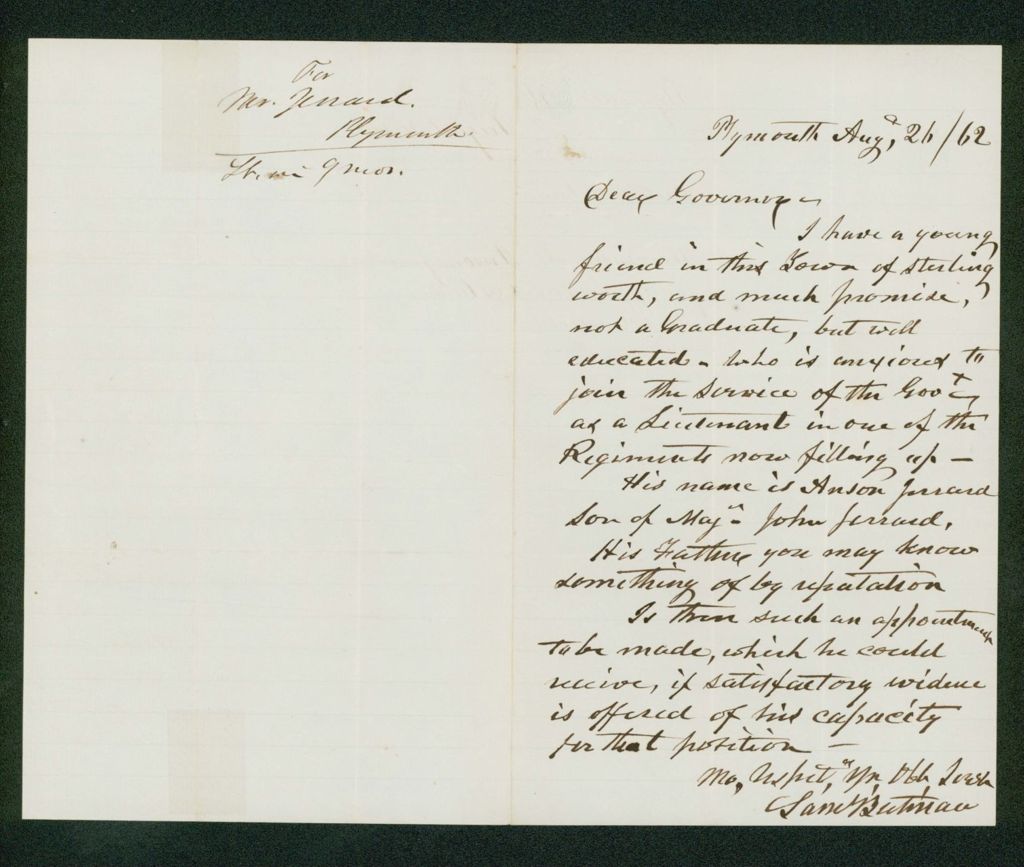 For
Mr. Jerrard.
Plymouth.
9 mos.
Plymouth Augt, 26/62
Dear Governor
I have a young
friend in this Town of sterling
worth, and much promise,
not a Graduate, but well
educated - who is anxious to
join the service of the Govt
as a Lieutenant in one of the
Regiments now filling up -
His name is Anson Jerrard
son of Majr John Jerrard.
His Father you may know
something of by reputation
Is there such an appointment
to be made, which he could
receive, if satisfactory evidence
is offered of his capacity
for that position -
Mo, Respct, Yr, Obt, Servt
Saml Butman